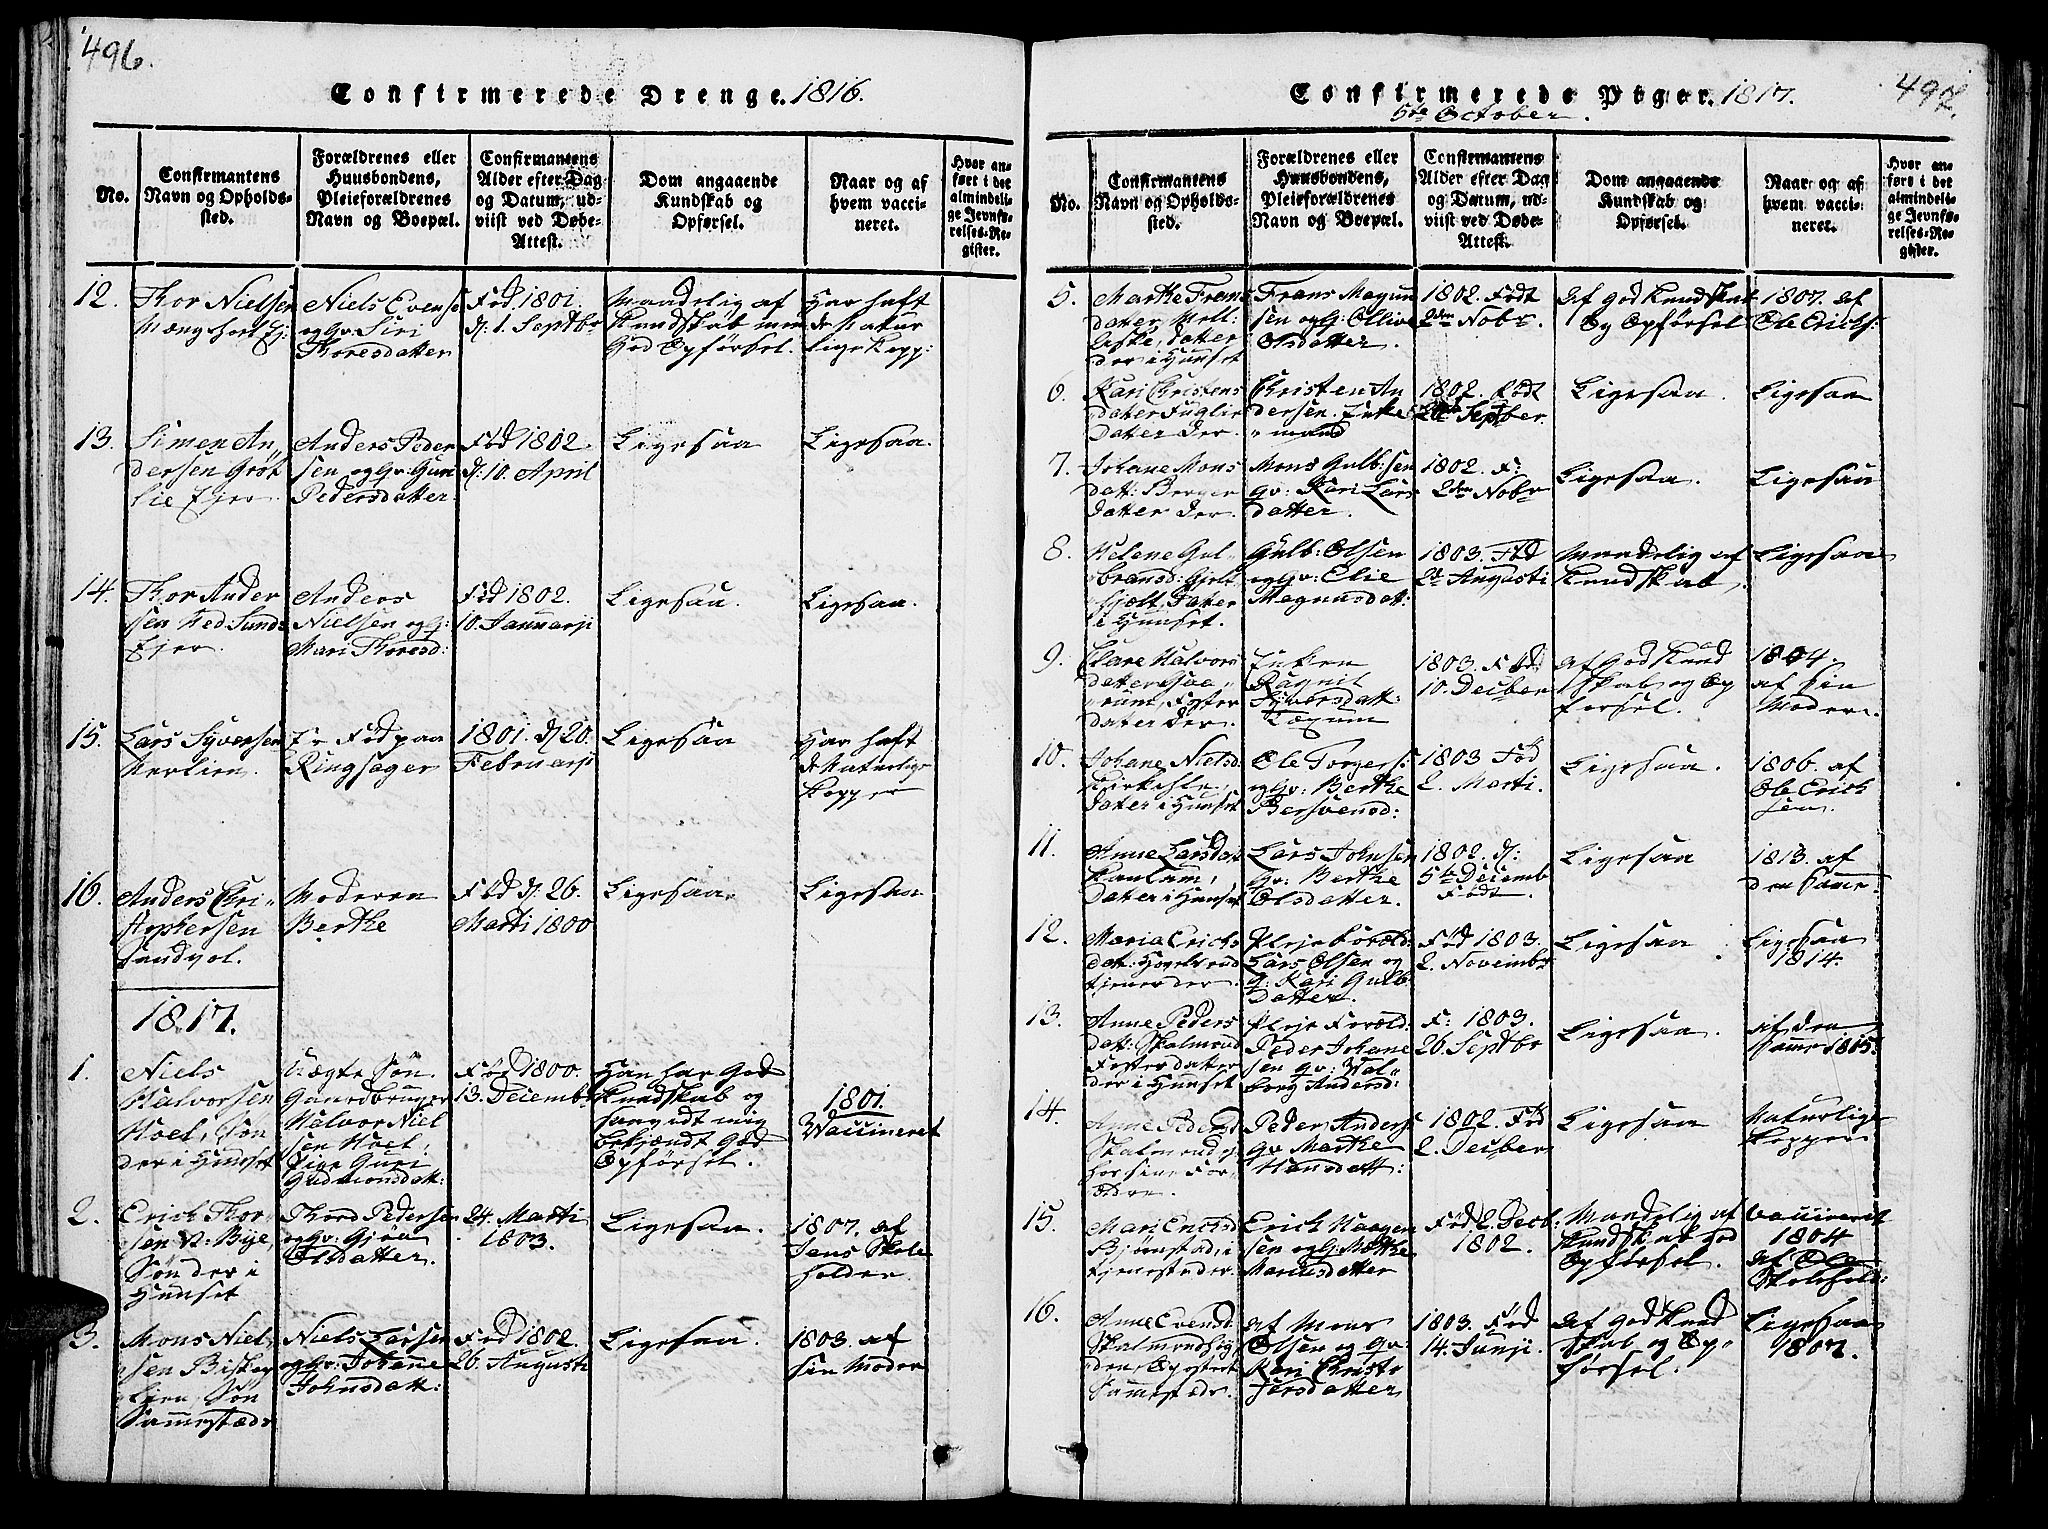 496.
Confirmerede Drenge. 1816.
No.
Confirmantens
Navn og Opholds-
sted.
Forældrenes eller
Huusbondens,
Pleieforældrenes
Navn og Boepæl.
Confirmantens
Alder efter Dag
og Datum, ud-
viist ved Døbe-
Attest.
Dom angaaende
Kundskab og
Opførsel.
Naar og af
hvem vacci-
neret.
Hvor an-
ført i det
almindeli-
ge Jevnfø-
relses-Re-
gister.
12.
Thor Nielsen
Niels Evens
og Gv: Siri
Thoresdatter
Fød 1801.
d: 1. Septbr
Maadelig af
Kundskab men
God Opførsel.
Har haft
de Natur
lige Kopp:
13.
Simen An„
dersen Grøt
lie Ejer.
Anders Peder
sen og Gv: Gun
Pedersdatter.
Fød 1802.
d: 10. April
Ligesaa
Ligesaa.
14.
Thor Ander
sen Ved Sund
Ejer.
Anders
Nielsen og G:
Mari Thoresd:
Fød 1802.
10. Januarji
Ligesaa.
Ligesaa.
15.
Lars Syversen
Ner Lien.
Er Fød paa
Ringsager
1801. d. 20.
Februarji
Ligesaa
Har haft
de Naturlige
Kopper
16.
Anders Chri„
stophersen
Sandvol.
Moderen
Berthe
Fød d: 26.
Marti 1800
Ligesaa.
Ligesaa
1817.
1.
Niels
Halvorsen
Hoel, Søn
der i Huuset
Uægte Søn.
Gaardbruger
Halvor Niel
sen Hoel.
Pige Guri
Gudmonsdatt:
Fød 1800.
13. Decemb
Han har God
Kundskab og
saavidt mig
bekjendt God
Opførsel.
1801.
Vaccineret
2.
Erich Thor„
sen N: Bye,
Søn der i
Huuset
Thord Pedersen
og Gv: Gjøa
Olsdatter.
24. Marti
1803.
Ligesaa.
1807. af
Jens Skole
holder.
3.
Mons Niel„
sen Biskop
Lien, Søn
Sammestæds
Niels Larsen
og Gv: Johane
Johnsdatt:
Fød 1802.
26. Augusti
Ligesaa.
1803. af
sin Moder
497.
Confirmerede Piger. 1817.
5te October.
No.
Confirmantens
Navn og Opholds-
sted.
Forældrenes eller
Huusbondens,
Pleieforældrenes
Navn og Boepæl.
Confirmantens
Alder efter Dag
og Datum, ud-
viist ved Døbe-
Attest.
Dom angaaende
Kundskab og
Opførsel.
Naar og af
hvem vacci-
neret.
Hvor an-
ført i det
almindeli-
ge Jevnfø-
relses-Re-
gister.
5.
Marthe Frans
datter Mell:
Aske, Datter
der i Huuset
Frans Magun
sen og G: Ollive
Olsdatter.
1802. Født
2den Nobr.
Af god Kundskab
Og Opførsel
1807. af
Ole Erichs:
6.
Kari Christens
datter Fuglie
Datter der.
Christen An
dersen. Enke
„mand
1802. Født
Septber.
Ligesaa.
Ligesaa
7.
Johane Mons
datt: Berger
Datter der.
Mons Gulb:sen
Gv: Kari Lars
datter.
1802. F:
2den Nobr
Ligesaa.
Ligesaa
8.
Helene Gul„
bransd: Gjelt
hjelt, Datter
i Huuset.
Gulb: Olsen
og Gv: Elie
Magnusdatt:
1803. Fød
2de Augusti
Maadelig af
Kundskab.
Ligesaa
9.
Clare Halvors
datter Saa„
rum, Foster
datter der.
Enken
Ragnil
Syversdatt:
1803. Fød
10. Decber
Af God Kund
skab og Op
førsel.
1804.
af sin
Moder.
10.
Johane Nielsd:
Kirkehle,
Datter i Huuset
Ole Torgers:
og Gv: Berthe
Bersvensd:
1803 Fød
2. Marti.
Ligesaa.
1806. af
Ole Erich
sen.
11.
Anne Larsdat
Datter i Huuset
Lars Johnsen
Gv: Berthe
Olsdatter.
1802. d:
5te Decemb
Født.
Ligesaa
1813. af
den Same.
12.
Maria Erichs
datt: Hovelsrud
tjener der.
Pleje Foræld:
Lars Olsen og
G: Kari Gulb
Datter.
Fød 1803.
2. Novembr
Ligesaa
Ligesaa
1814.
13.
Anne Peders
datt: Skalmrud
Foster datter
der i Huuset
Pleje Foræld:
Peder Johane
sen Gv: Val„
borg Andersd:
F: 1803.
26. Septbr
Ligesaa.
af den
Same 1815.
14.
Anne Pedersd
Skalmrud,
hos sine For„
ældre.
Peder Anders:
Gv Marthe
Hansdatt:
1802. Fød
2. Decber
Ligesaa
Naturlige
Kopper
15.
Mari Erichsd
Bjørnstad, i
tjeneste der.
Erich Haagen
sen og G: Mæthe
Mariusdatter
Fød 2. Decb:
1802.
Maadelig af
Kundskab God
Opførsel.
Vaccineret
1804
af Ole
Skolehold:
16.
Anne Evensd
Skalmrudhøg„
den, Opfostert
Sammestæds.
Af Mons
Olsen og Gv:
Kari Christo
fersdatter
1803. Fød
14. Junji.
Af God Kund
skab og Op„
førsel.
Ligesaa
1807.